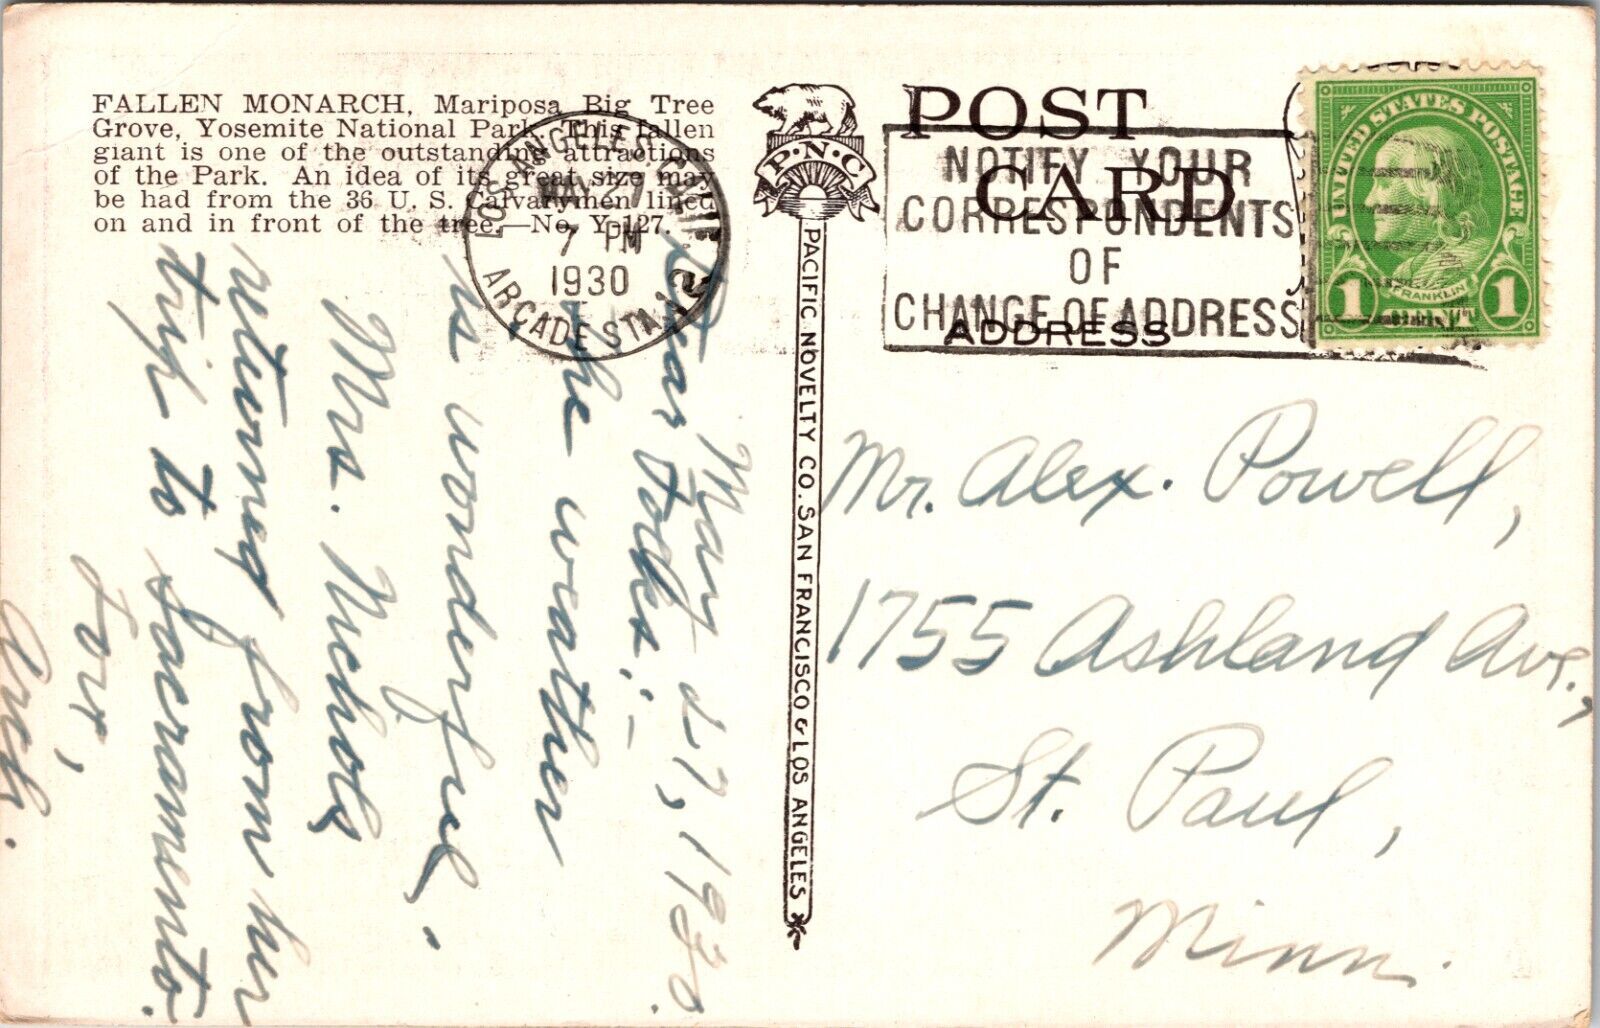 FALLEN MONARCH, Mariposa Big Tree
Grove, Yosemite National Park. This fallen
giant is one of the outstanding attractions
of the Park. An idea of its great size may
be had from the 36 U. S. Calvarymen lined
on and in front of the tree.—No. Y-127.
LOS ANGELES CALIF.
MAY 27
7 PM
1930
ARCADE STA.
P.N.C
PACIFIC NOVELTY CO. SAN FRANCISCO & LOS ANGELES
POST CARD
NOTIFY YOUR
CORRESPONDENTS
OF
CHANGE OF ADDRESS
ADDRESS
UNITED STATES POSTAGE
FRANKLIN
1 CENT 1
May 27, 1930.
Dear Folks:-
The weather
is wonderful.
Mrs. Nichols
returned from her
trip to Sacramento.
Love,
Mr. Alex. Powell,
1755 Ashland Ave.,
St. Paul,
Minn.